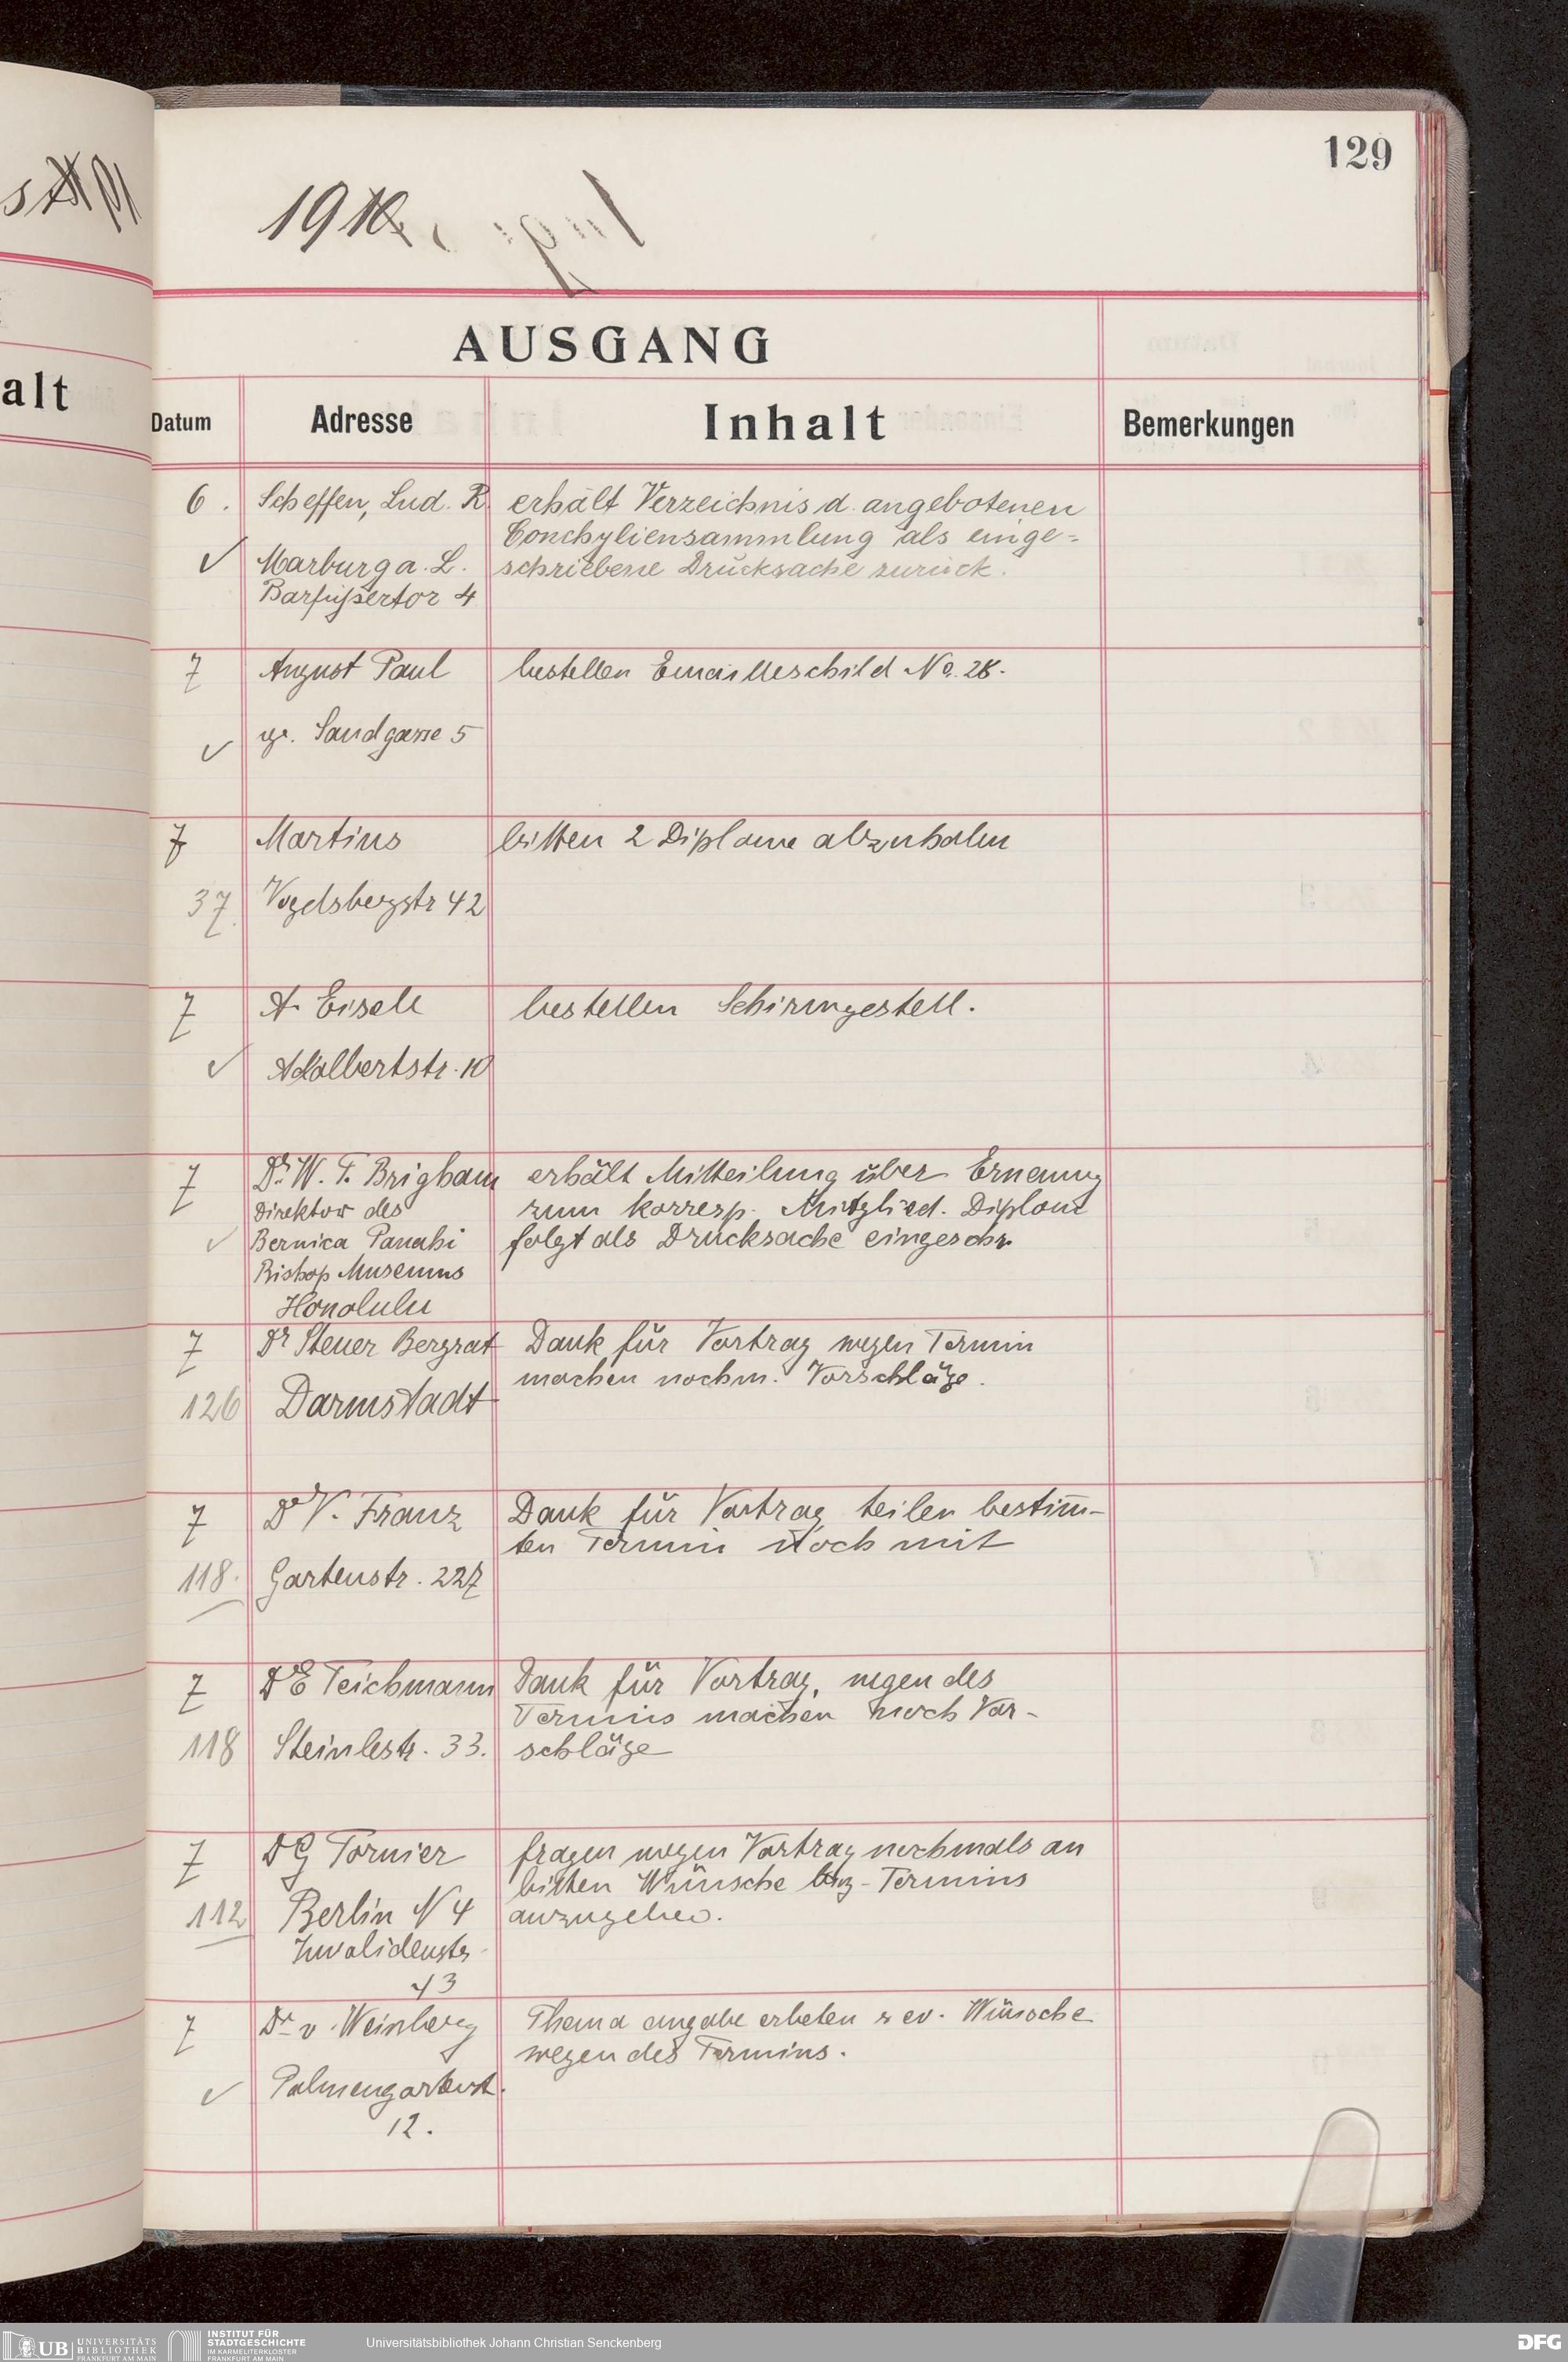 129
1910.
AUSGANG
alt
Datum Adresse Inhalt Bemerkungen
6. Scheffen, Lud. R. erhält Verzeichnis d. angebotenen
Conchyliensammlung als einge-
✓ Marburg a. L. schriebene Drucksache zurück.
Barfüßertor 4
7 August Paul bestellen Emailleschild No. 28.
✓ gr. Sandgasse 5
7 Martins bitten 2 Diplome abzuholen
37. Vogelsbergstr 42
7 A. Eisele bestellen Schirmgestell.
✓ Adalbertstr. 10
7 Dr. W. T. Brigham erhält Mitteilung über Ernennung
Direktor des zum korresp. Mitglied. Diplom
✓ Bernica Panahi folgt als Drucksache eingeschr.
Bishop Museums
Honolulu
7 Dr Steuer Bergrat Dank für Vortrag wegen Termin
machen nochm. Vorschläge.
126 Darmstadt
7 Dr V. Franz Dank für Vortrag teilen bestim̄-
ten Termin noch mit
118. Gartenstr. 227
7 Dr E Teichmann Dank für Vortrag, wegen des
Termins machen noch Vor-
118 Steinlestr. 33. schläge
7 Dr G Tornier fragen wegen Vortrag nochmals an
bitten Wünsche bzg. Termins
112 Berlin N 4 anzugeben.
Invalidenstr.
43
7 Dr v. Weinberg Thema angabe erbeten u ev. Wünsche
wegen des Termins.
✓ Palmengartenst.
12.
UB UNIVERSITÄTS
BIBLIOTHEK
FRANKFURT AM MAIN
INSTITUT FÜR
STADTGESCHICHTE
IM KARMELITERKLOSTER
FRANKFURT AM MAIN
Universitätsbibliothek Johann Christian Senckenberg
DFG